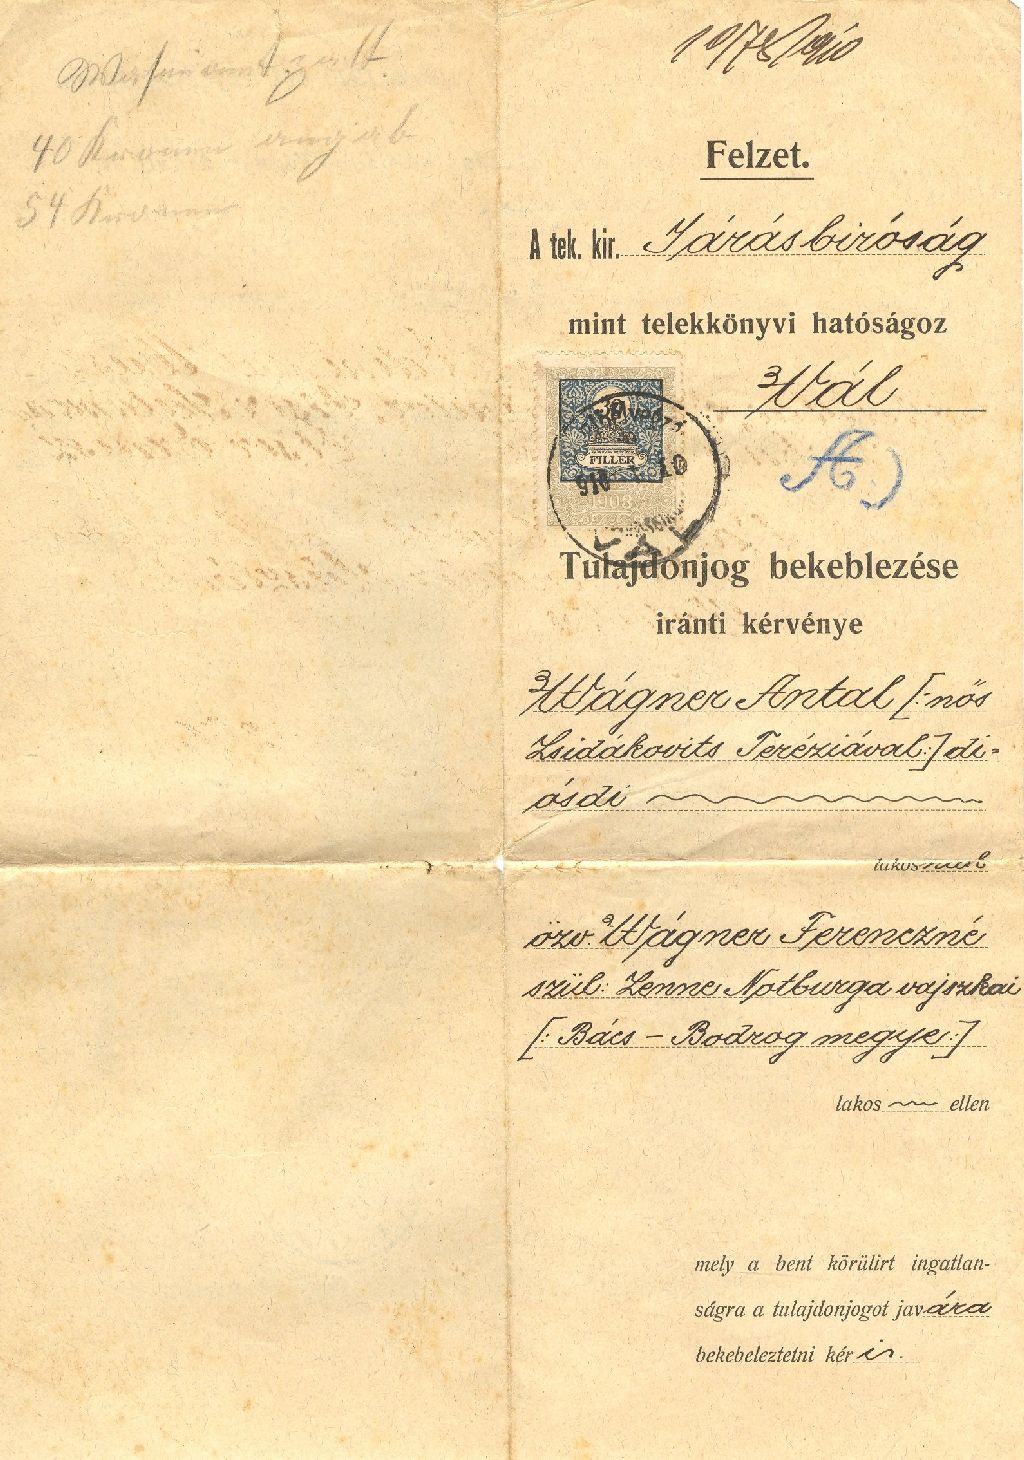 40 Kronen angab
54 Kronen
Felzet.
A tek. kir. Járásbiróság
mint telekkönyvi hatóságoz
Vál
FILLÉR
A.)
Tulajdonjog bekeblezése
iránti kérvénye
Wágner Antal [:nős
Zsidákovits Teréziával:] di-
ósdi
lakosnak
özv. Wágner Ferenczné
szül: Zenne Notburga vajszkai
[: Bács - Bodrog megye:]
lakos ellen
mely a bent körülirt ingatlan-
ságra a tulajdonjogot javára
bekebeleztetni kéri.